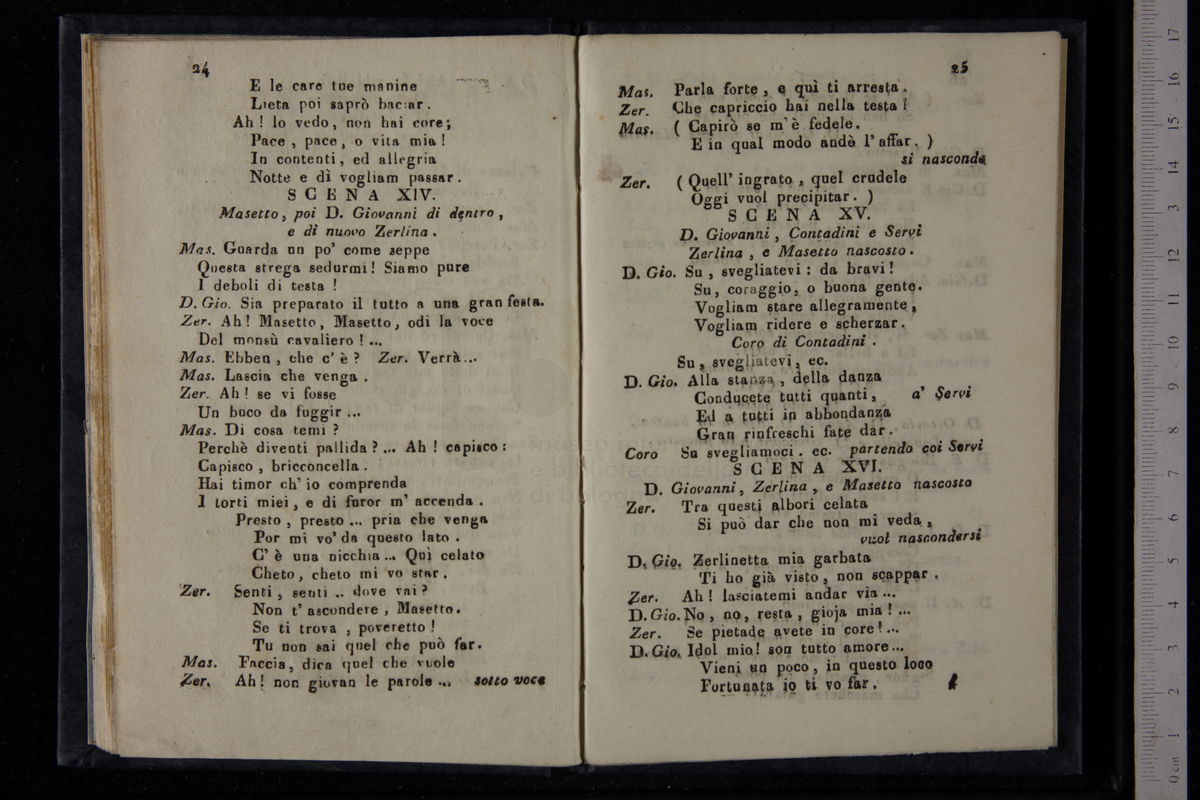 24
E le care tue manine
Lieta poi saprò baciar.
Ah! lo vedo, non hai core;
Pace, pace, o vita mia!
In contenti, ed allegria
Notte e dì vogliam passar.
SCENA XIV.
Masetto, poi D. Giovanni di dentro,
e di nuovo Zerlina.
Mas. Guarda un po' come seppe
Questa strega sedurmi! Siamo pure
I deboli di testa!
D. Gio. Sia preparato il tutto a una gran festa.
Zer. Ah! Masetto, Masetto, odi la voce
Del monsù cavaliero! ...
Mas. Ebben, che c'è? Zer. Verrà...
Mas. Lascia che venga.
Zer. Ah! se vi fosse
Un buco da fuggir ...
Mas. Di cosa temi?
Perchè diventi pallida? ... Ah! capisco:
Capisco, bricconcella.
Hai timor ch'io comprenda
I torti miei, e di furor m'accenda.
Presto, presto ... pria che venga
Por mi vo' da questo lato.
C'è una nicchia ... Quì celato
Cheto, cheto mi vo star.
Zer. Senti, senti .. dove vai?
Non t'ascondere, Masetto.
Se ti trova, poveretto!
Tu non sai quel che può far.
Mas. Faccia, dica quel che vuole
Zer. Ah! non giovan le parole ... sotto voce
25
Mas. Parla forte, e quì ti arresta.
Zer. Che capriccio hai nella testa!
Mas. (Capirò se m'è fedele.
E in qual modo andè l'affar.)
si nasconde
Zer. (Quell'ingrato, quel crudele
Oggi vuol precipitar.)
SCENA XV.
D. Giovanni, Contadini e Servi
Zerlina, e Masetto nascosto.
D. Gio. Su, svegliatevi: da bravi!
Su, coraggio, o buona gente.
Vogliam stare allegramente,
Vogliam ridere e scherzar.
Coro di Contadini.
Su, svegliatevi, ec.
D. Gio. Alla stanza, della danza
Conducete tutti quanti, a' Servi
Ed a tutti in abbondanza
Gran rinfreschi fate dar.
Coro Su svegliamoci. ec. partendo coi Servi
SCENA XVI.
D. Giovanni, Zerlina, e Masetto nascosto
Zer. Tra questi albori celata
Si può dar che non mi veda,
vuol nascondersi
D. Gio. Zerlinetta mia garbata
Ti ho già visto, non scappar.
Zer. Ah! lasciatemi andar via ...
D. Gio. No, no, resta, gioja mia! ...
Zer. Se pietade avete in core! ...
D. Gio. Idol mio! son tutto amore...
Vieni un poco, in questo loco
Fortunata io ti vo far.
0 cm 1 2 3 4 5 6 7 8 9 10 11 12 13 14 15 16 17